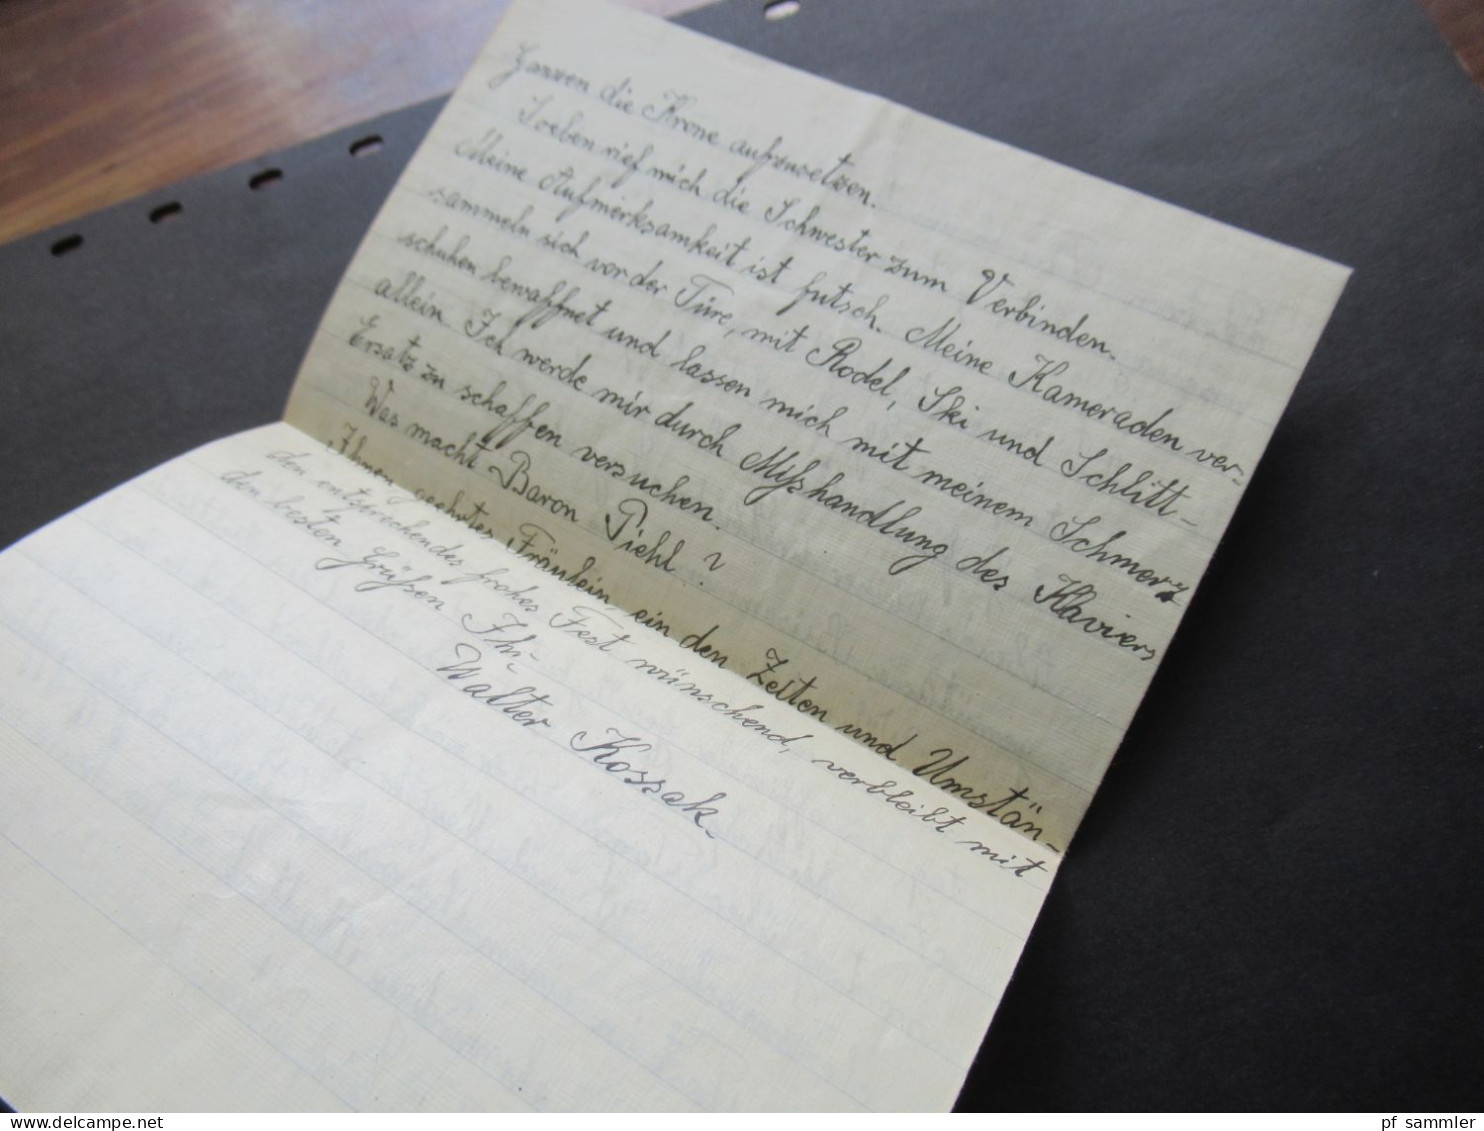 Ganzen die Krone aufzusetzen.
Soeben rief mich die Schwester zum Verbinden.
Meine Aufmerksamkeit ist futsch. Meine Kameraden ver-
sammeln sich vor der Türe, mit Rodel, Ski und Schlitt-
schuhen bewaffnet und lassen mich mit meinem Schmerz
allein. Ich werde mir durch Myshandlung des Klaviers
Ersatz zu schaffen versuchen.
Was macht Baron Piehl?
Ihnen, geehrtes Fräulein, ein den Zeiten und Umstän-
den entsprechendes frohes Fest wünschend, verbleibt mit
den besten Grüßen Ihr
Walter Kossak.
pf sammler
www.delcampe.net